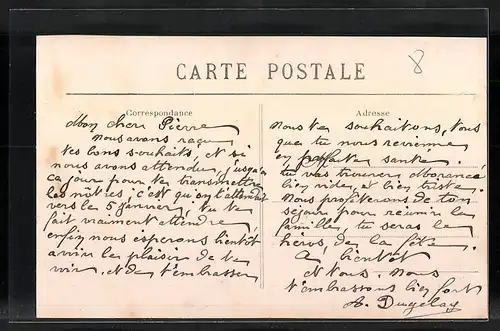 8
CARTE POSTALE
Correspondance
Adresse
Mon cher Pierre
nous avons reçu
tes bons souhaits, et si
nous avons attendu, jusqu'a
ca jour pour te transmettre
les notres, c'est qu'on t'attendait
vers le 5 janvier, tu te
fait vraiment attendre,
enfin nous esperons bientôt
avoir le plaisir de te
voir. et de t'embrasser
nous te souhaitons, tous
que tu nous revienne
en parfaite sante.
tu vas trouver
bien vide, et bien triste.
nous profiterons de ton
séjour pour reunir la
famille, tu seras le
héros, de la fête.
A bientot
et tous. nous
t'embrassons bien fort